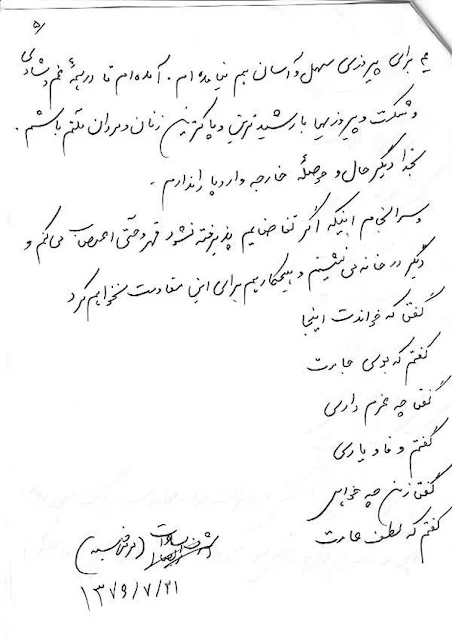 ۵
که برای پیروزی سهل و آسان هم نیامده ام. آمده ام تا در همهٔ غم و شادی
و شکست و پیروزیها با رشیدترین و پاکترین زنان و مردان ملتم باشم.
بخدا دیگر حال و حوصلهٔ خارجه و اروپا را ندارم.
و سرانجام اینکه اگر تقاضایم پذیرفته نشود قهر و حتی اعتصاب می کنم و
دیگر در خانه می نشینم و هیچکار هم برای این مقاومت نخواهم کرد
گفتا که خواندت اینجا
گفتم که بوی جامت
گفتا چه عزم داری
گفتم وفا و یاری
گفتا ز من چه خواهی
گفتم که لطف عامت
۱۳۷۹/۷/۲۱